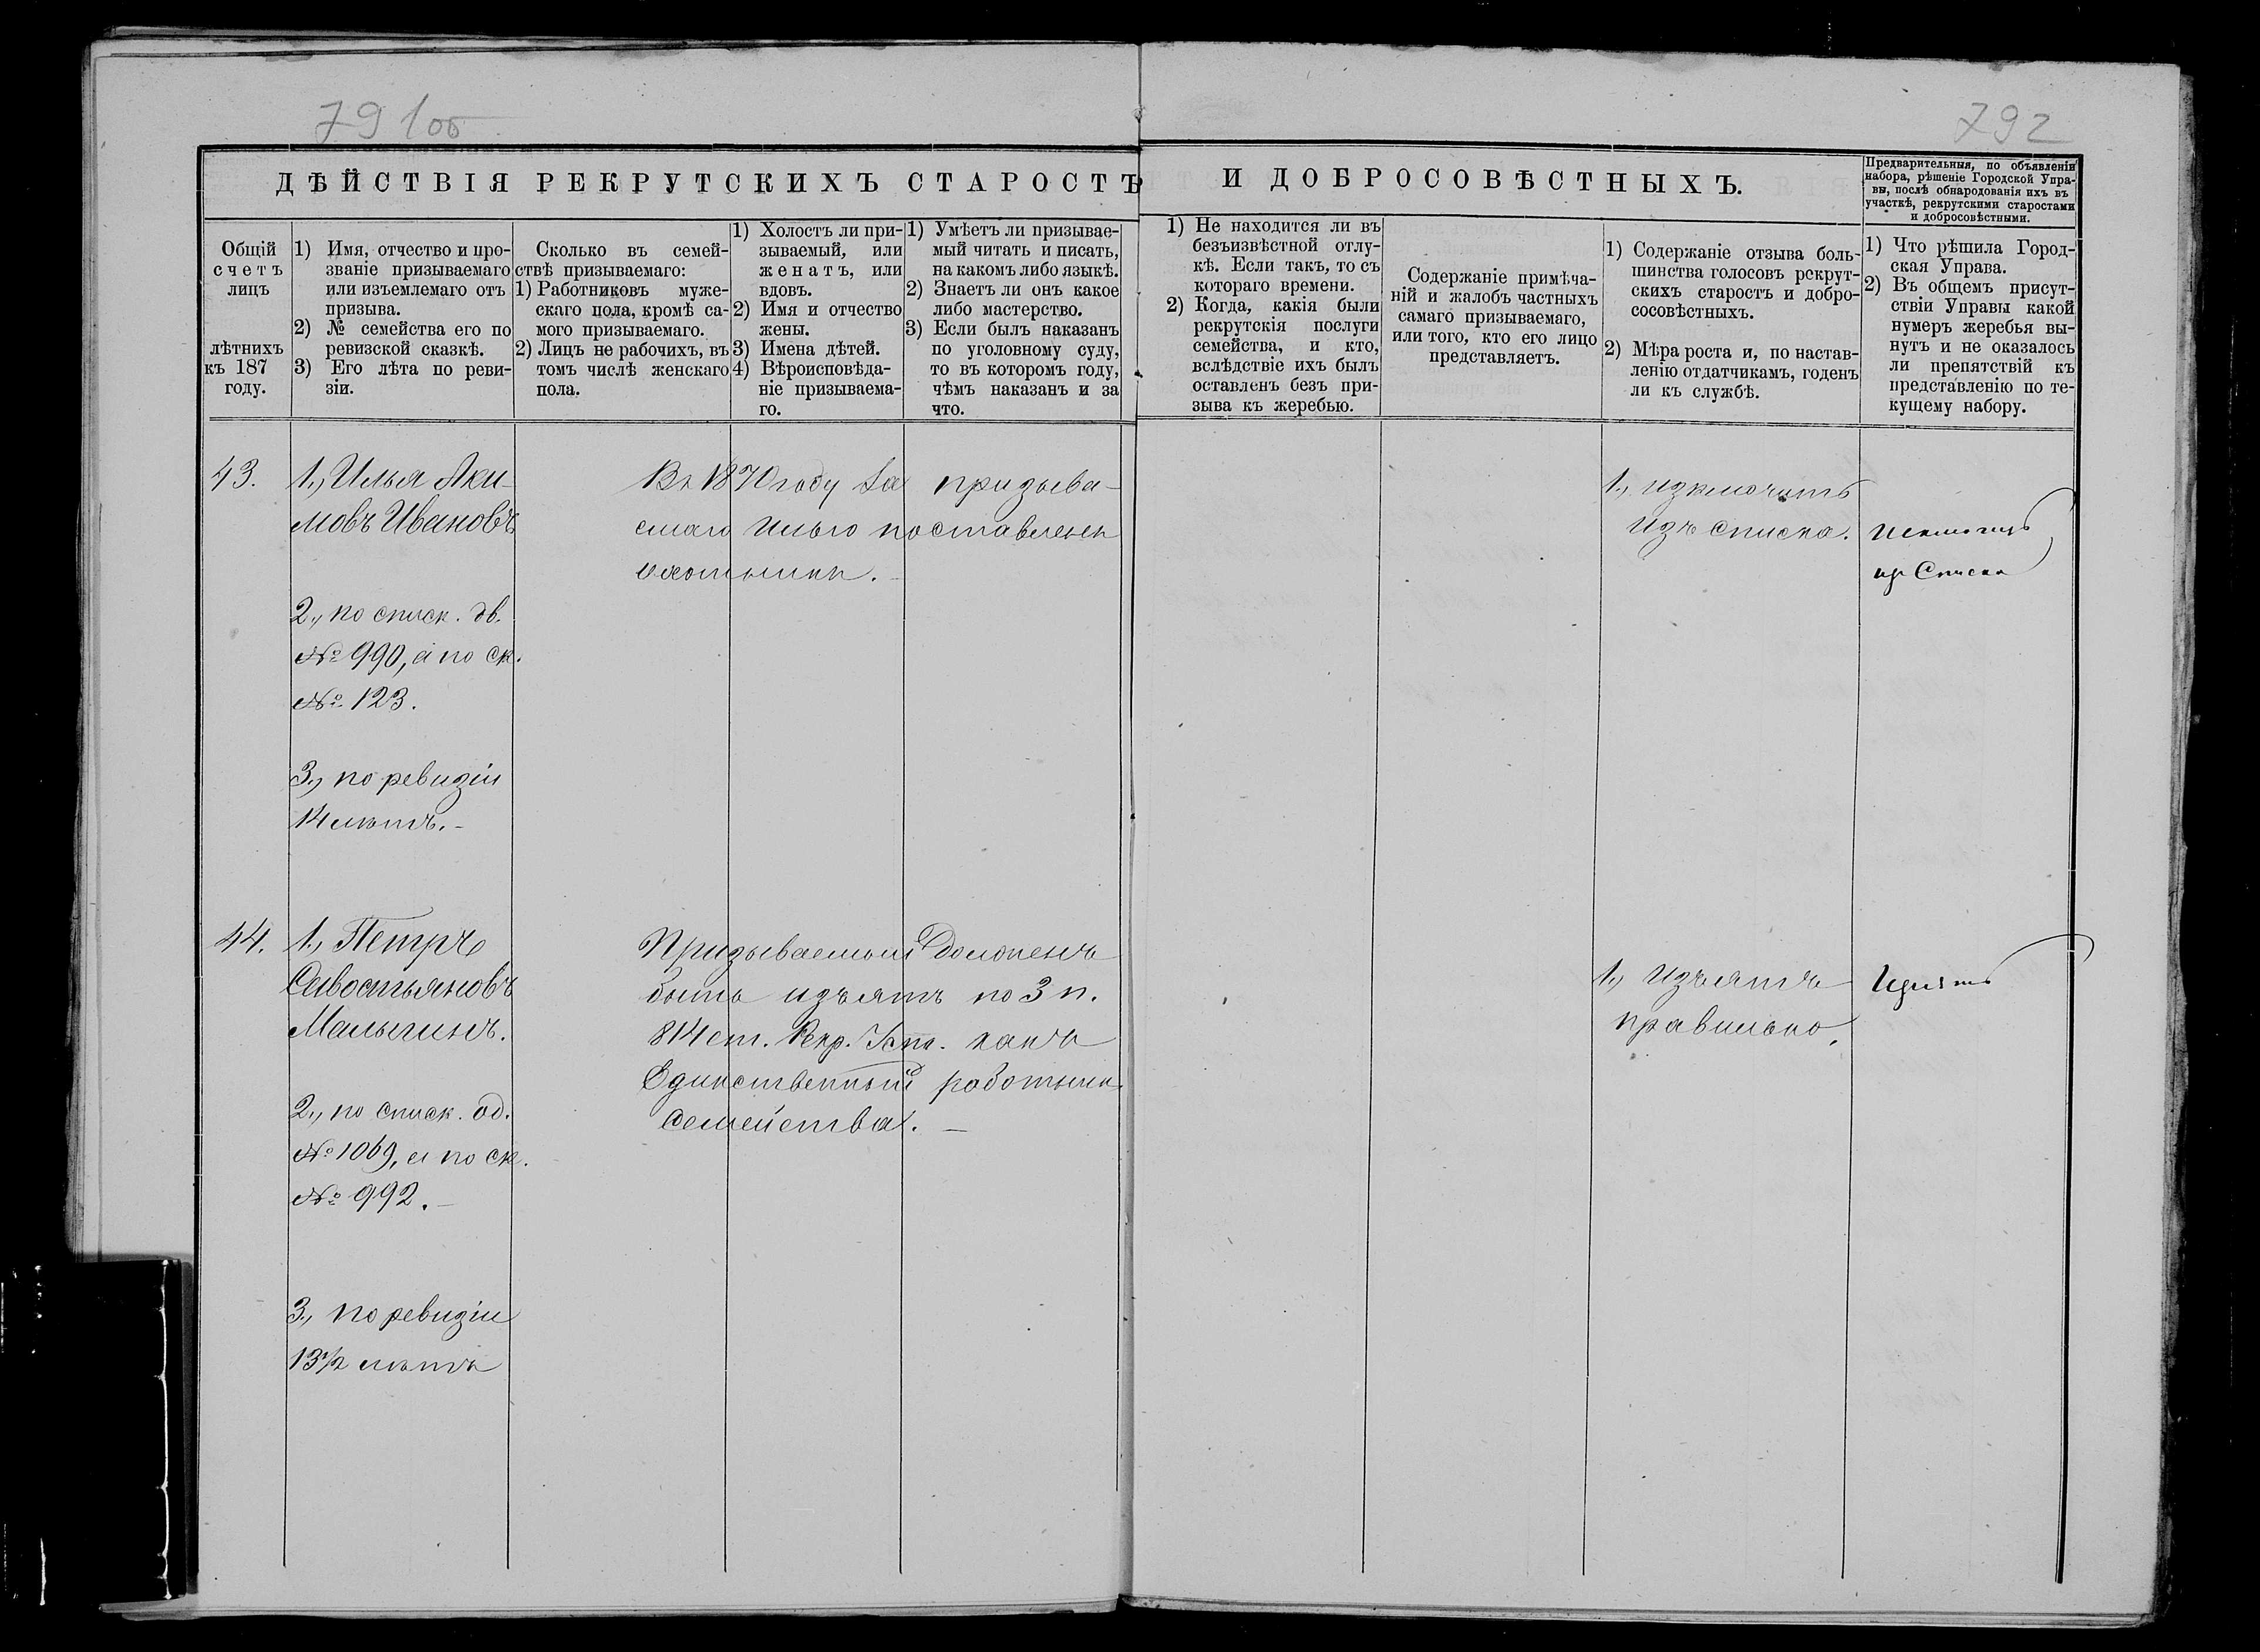 791об
792
ДѢЙСТВІЯ РЕКРУТСКИХЪ СТАРОСТЪ
И ДОБРОСОВѢСТНЫХЪ.
Предварительныя, по объявленіи
набора, рѣшеніе Городской Упра-
вы, послѣ обнародованія ихъ въ
участкѣ, рекрутскими старостами
и добросовѣстными.
Общій
счетъ
лицъ
лѣтнихъ
къ 187
году.
1) Имя, отчество и про-
званіе призываемаго
или изъемлемаго отъ
призыва.
2) № семейства его по
ревизской сказкѣ.
3) Его лѣта по реви-
зіи.
Сколько въ семей-
ствѣ призываемаго:
1) Работниковъ муже-
скаго пола, кромѣ са-
мого призываемаго.
2) Лицъ не рабочихъ, въ
томъ числѣ женскаго
пола.
1) Холостъ ли при-
зываемый, или
женатъ, или
вдовъ.
2) Имя и отчество
жены.
3) Имена дѣтей.
4) Вѣроисповѣда-
ніе призываема-
го.
1) Умѣетъ ли призывае-
мый читать и писать,
на какомъ либо языкѣ.
2) Знаетъ ли онъ какое
либо мастерство.
3) Если былъ наказанъ
по уголовному суду,
то въ которомъ году,
чѣмъ наказанъ и за
что.
1) Не находится ли въ
безъизвѣстной отлу-
кѣ. Если такъ, то съ
котораго времени.
2) Когда, какія были
рекрутскія послуги
семейства, и кто,
вслѣдствіе ихъ былъ
оставленъ безъ при-
зыва къ жеребью.
Содержаніе примѣча-
ній и жалобъ частныхъ
самаго призываемаго,
или того, кто его лицо
представляетъ.
1) Содержаніе отзыва боль-
шинства голосовъ рекрут-
скихъ старостъ и добро-
сосовѣстныхъ.
2) Мѣра роста и, по настав-
ленію отдатчикамъ, годенъ
ли къ службѣ.
1) Что рѣшила Город-
ская Управа.
2) Въ общемъ присут-
ствіи Управы какой
нумеръ жеребья вы-
нутъ и не оказалось
ли препятствій къ
представленію по те-
кущему набору.
43.
1., Илья Аки-
мовъ Ивановъ
2., по списк. дв.
№ 990, а по ск.
№ 123.
3., по ревизіи
14 лѣтъ. -
Въ 1870 году за призыва-
емаго Илью поставленъ
охотникъ. -
1., изключить
изъ списка.
Исключить
изъ Списка
44.
1., Петръ
Савостьяновъ
Малыгинъ.
2., по списк. од.
№ 1069, а по ск.
№ 992. -
3., по ревизіи
13 1/2 лѣтъ
Призываемый долженъ
быть изъятъ по 3 п.
814 ст. Рекр. Уст. какъ
Единственный работникъ
семейства. -
1., Изъятъ
правильно.
Изъять